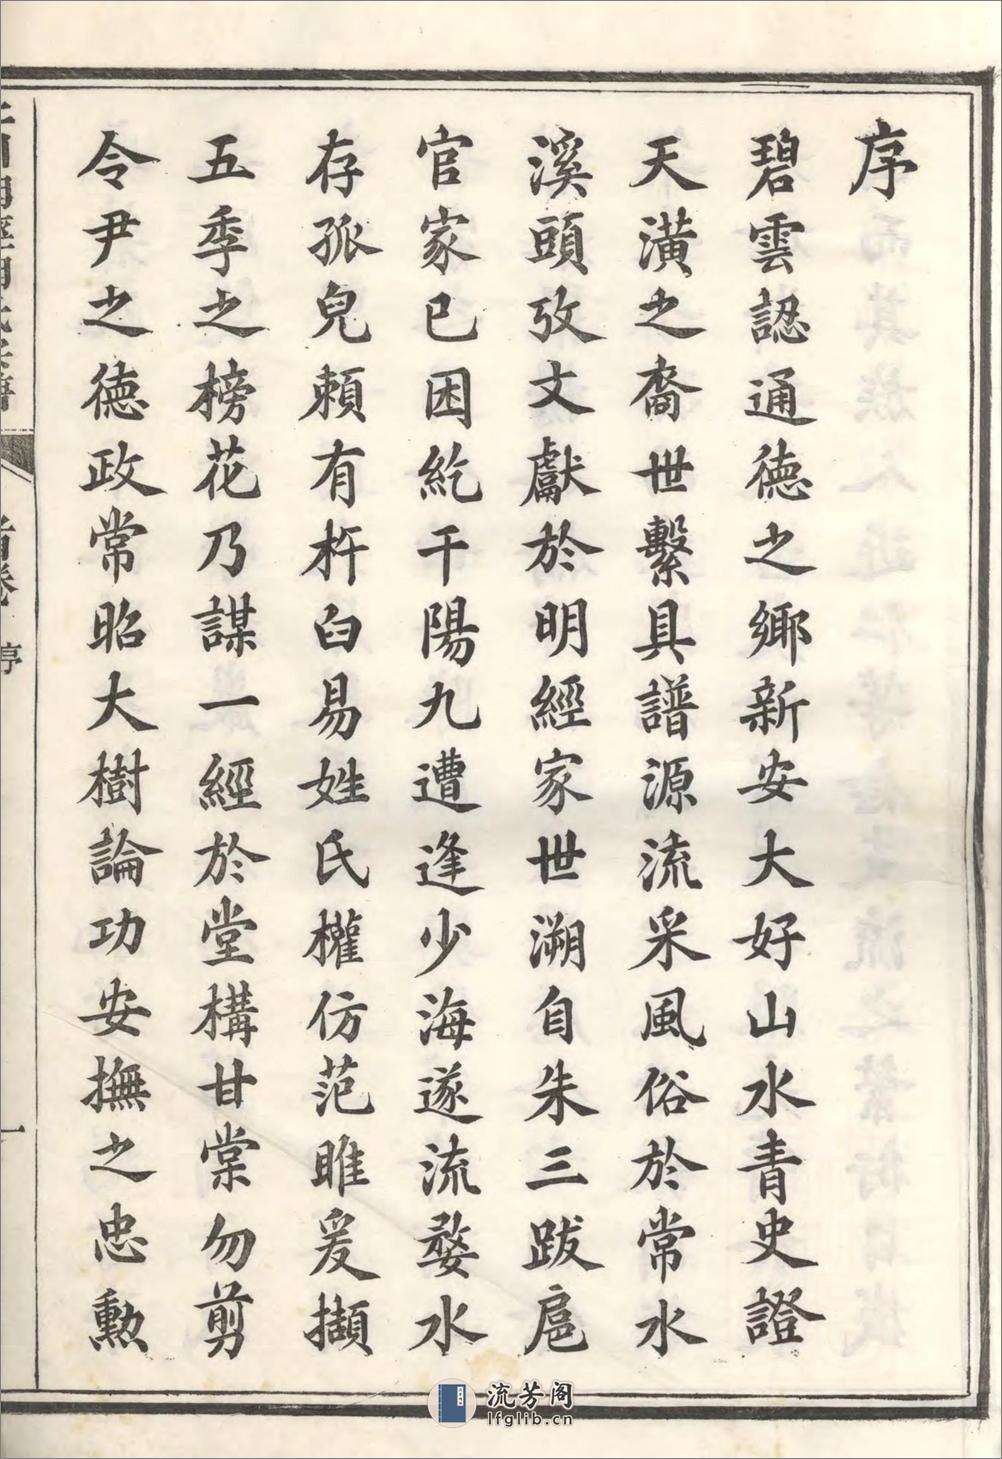 序
碧雲認通德之鄉新安大好山水青史證
天潢之裔世繫具譜源流采風俗於常水
溪頭攷文獻於明經家世溯自朱三跋扈
官家已困紇干陽九遭逢少海遂流婺水
存孤兒賴有杵臼易姓氏權仿范雎爰擷
五季之榜花乃謀一經於堂構甘棠勿剪
令尹之德政常昭大樹論功安撫之忠勳
首卷
序
一
流芳阁
lfglib.cn